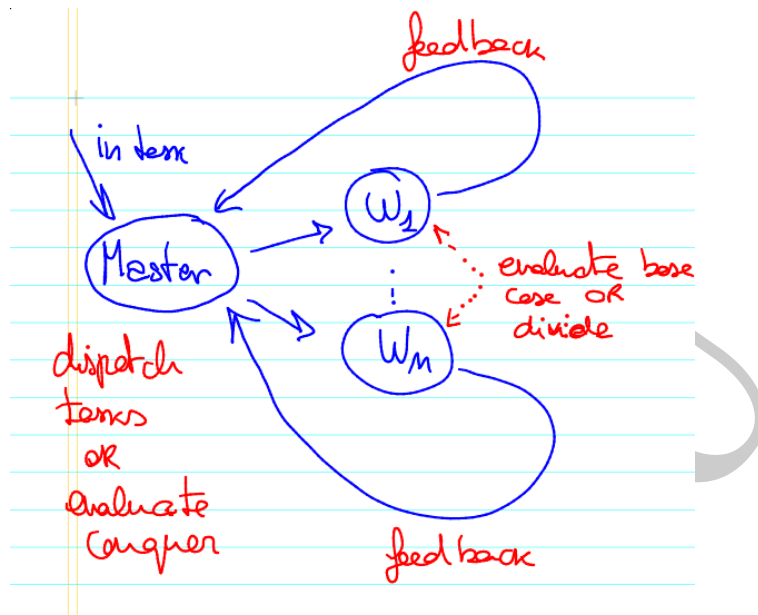 feedback
in task
W1
Master
evaluate base
case OR
divide
Wn
dispatch
tasks
OR
evaluate
Conquer
feedback